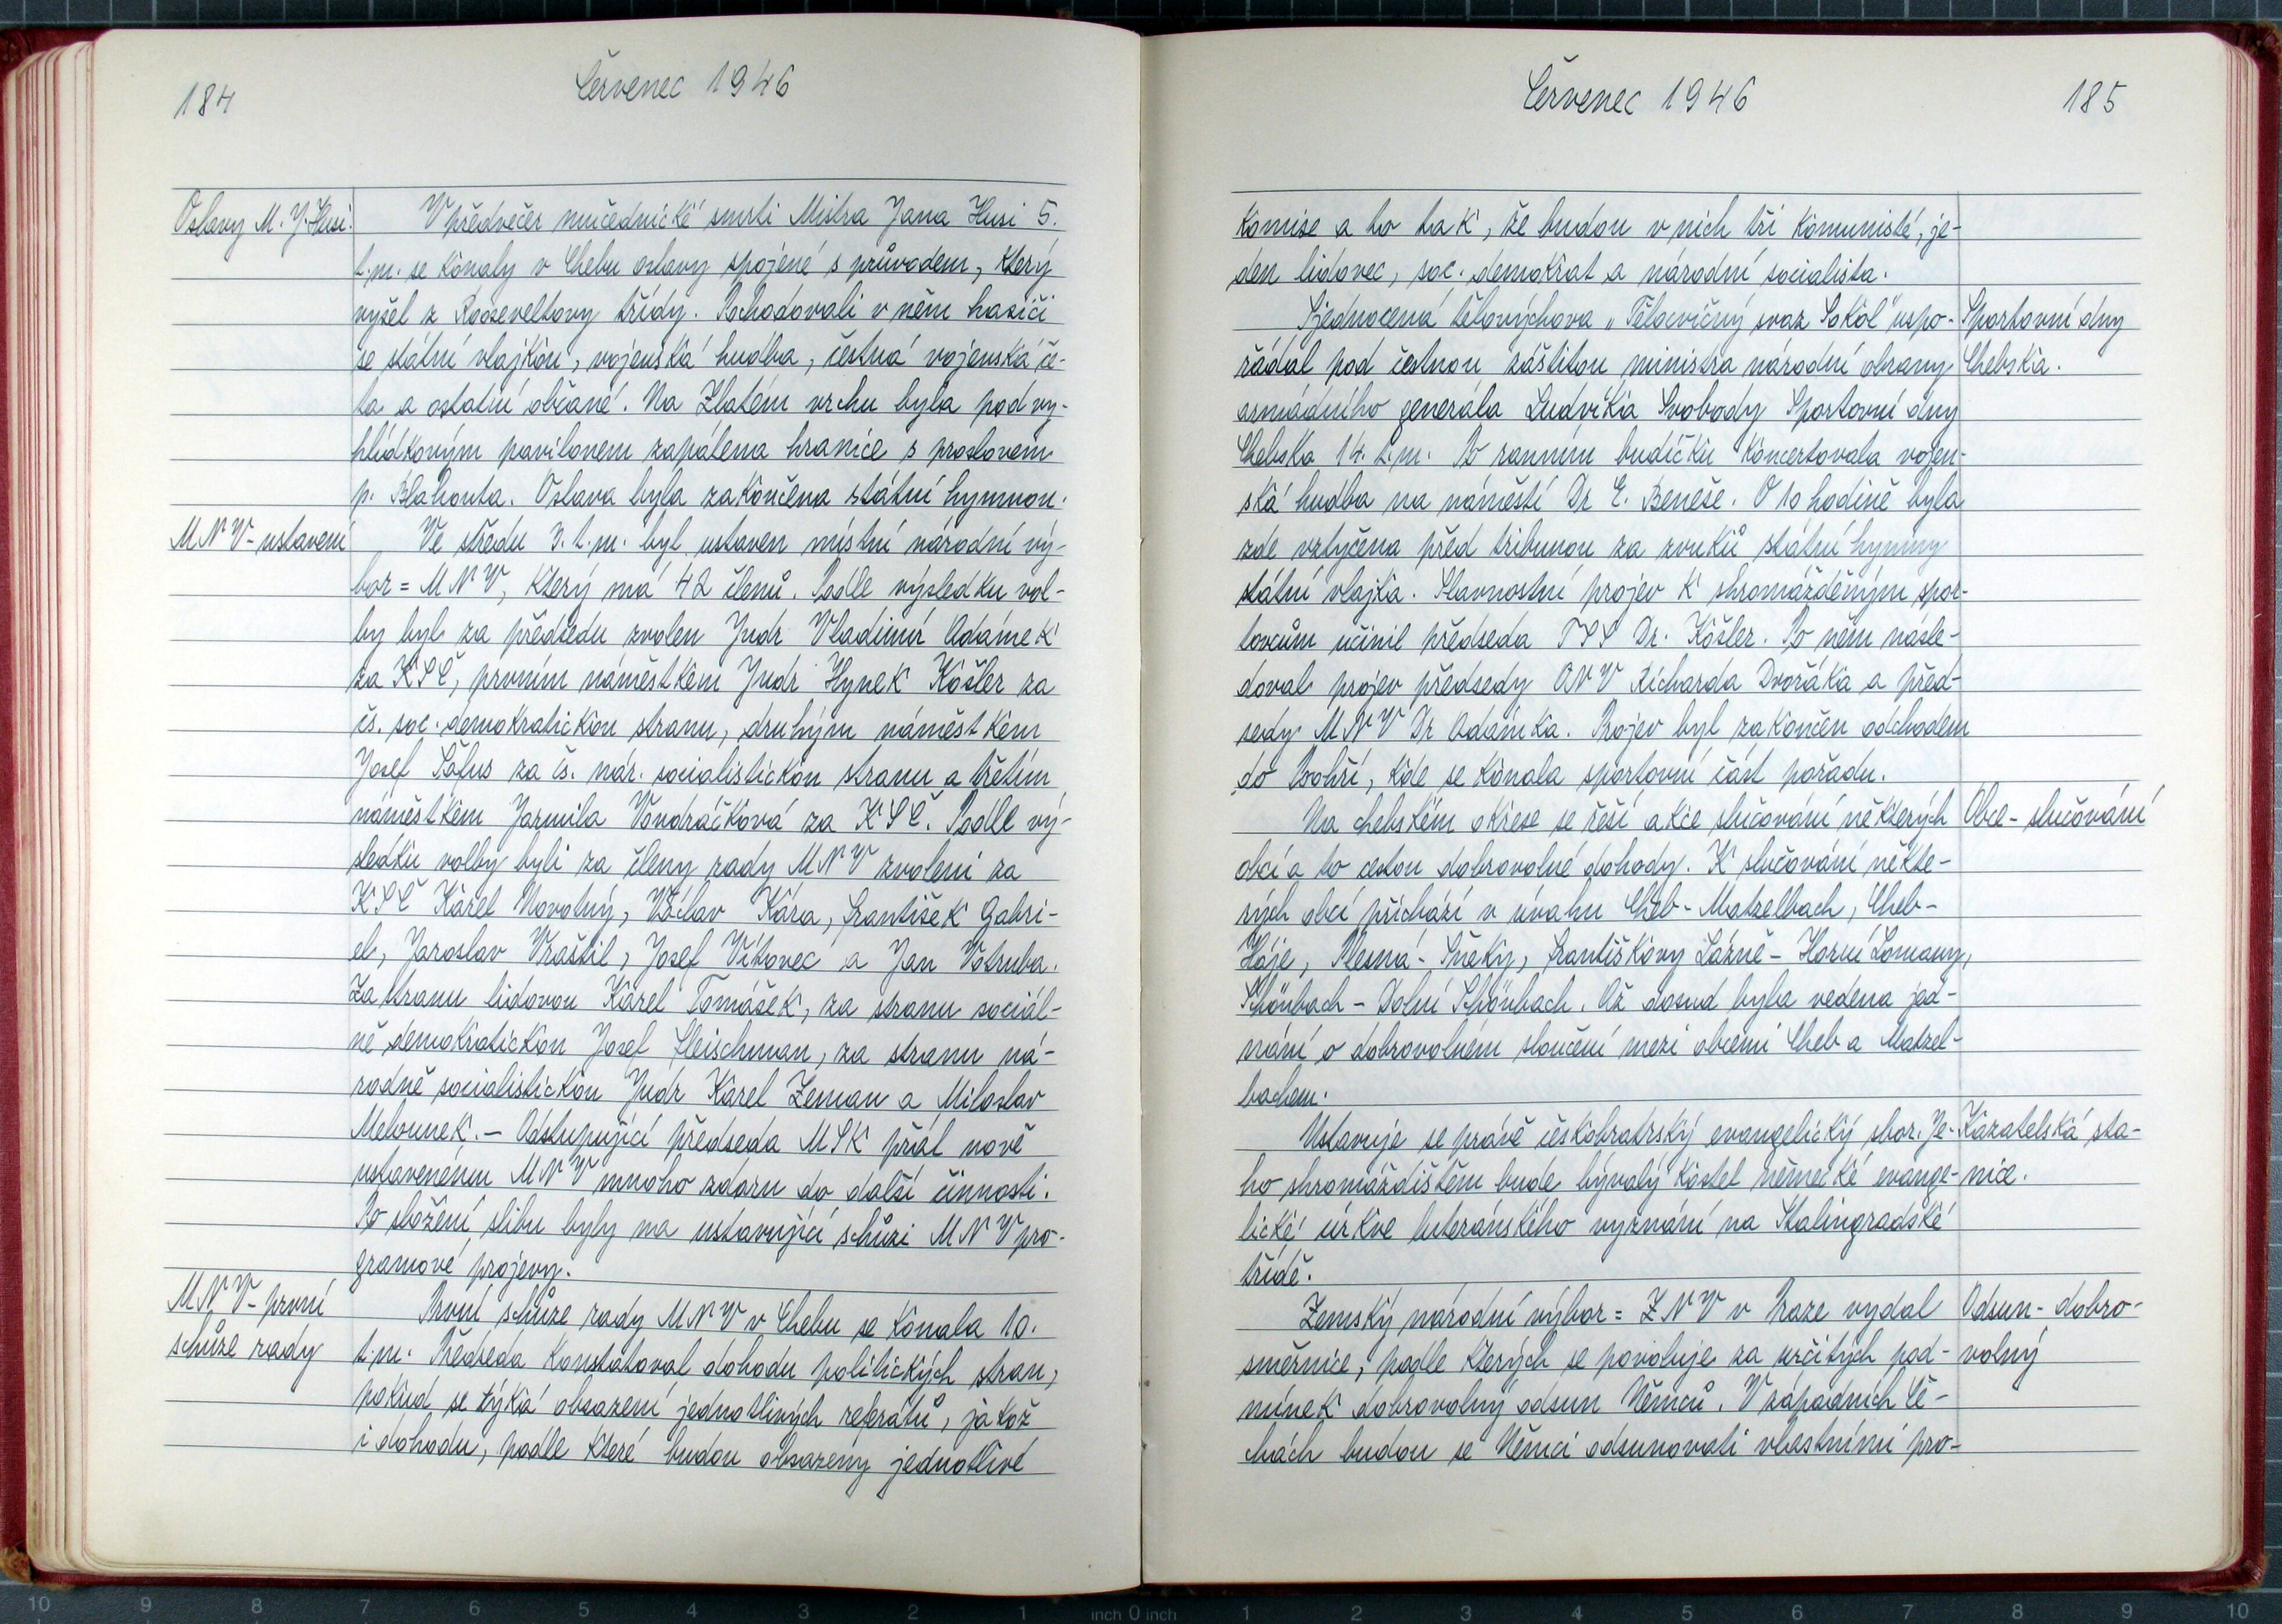 184
Červenec 1946
Oslavy M. J. Husi.
V předvečer mučednické smrti Mistra Jana Husi 5.
t.m. se konaly v Chebu oslavy spojené s průvodem, který
vyšel z Rooseveltovy třídy. Pochodovali v něm hasiči
se státní vlajkou, vojenská hudba, čestná vojenská če-
ta a ostatní občané. Na Zlatém vrchu byla pod vy-
hlídkovým pavilonem zapálena hranice s proslovem
p. Blahouta. Oslava byla zakončena státní hymnou.
MNV-ustavení
Ve středu 3. t.m. byl ustaven místní národní vý-
bor = MNV, který má 42 členů. Podle výsledku vol-
by byl za předsedu zvolen Judr Vladimír Adámek
za KSČ, prvním náměstkem Judr Hynek Köšler za
čs. soc. demokratickou stranu, druhým náměstkem
Josef Šafus za čs. nár. socialistickou stranu a třetím
náměstkem Jarmila Vondráčková za KSČ. Podle vý-
sledku volby byli za členy rady MNV zvoleni za
KSČ Karel Novotný, Václav Kára, František Gabri-
el, Jaroslav Vraštil, Josef Vítovec a Jan Votruba.
Za stranu lidovou Karel Tomášek, za stranu sociál-
ně demokratickou Josef Fleischman, za stranu ná-
rodně socialistickou Judr Karel Zeman a Miloslav
Melounek. - Odstupující předseda MSK přál nově
ustavenému MNV mnoho zdaru do další činnosti.
Po složení slibu byly na ustavující schůzi MNV pro-
gramové projevy.
MNV-první
schůze rady
První schůze rady MNV v Chebu se konala 10.
t.m. Předseda konstatoval dohodu politických stran,
pokud se týká obsazení jednotlivých referátů, jakož
i dohodu, podle které budou obsazeny jednotlivé
Červenec 1946
185
komise a to tak, že budou v nich tři komunisté, je-
den lidovec, soc. demokrat a národní socialista.
Sjednocená tělovýchova "Tělocvičný svaz Sokol" uspo-
řádal pod čestnou záštitou ministra národní obrany
armádního generála Ludvíka Svobody Sportovní dny
Chebska 14. t.m. Po ranním budíčku koncertovala vojen-
ská hudba na náměstí Dr E. Beneše. O 10 hodině byla
zde vztyčena před tribunou za zvuků státní hymny
státní vlajka. Slavnostní projev k shromážděným spor-
tovcům učinil předseda TSS Dr. Köšler. Po něm násle-
doval projev předsedy ONV Richarda Dvořáka a před-
sedy MNV Dr Adámka. Projev byl zakončen odchodem
do Poohří, kde se konala sportovní část pořadu.
Sportovní dny
Chebska.
Na chebském okrese se řeší akce slučování některých
obcí a to cestou dobrovolné dohody. K slučování někte-
rých obcí přichází v úvahu Cheb - Matzelbach, Cheb -
Háje, Plesná - Šneky, Františkovy Lázně - Horní Lomany,
Schönbach - Dolní Schönbach. Až dosud byla vedena jed-
nání o dobrovolném sloučení mezi obcemi Cheb a Matzel-
bachem.
Obce - slučování
Ustavuje se právě českobratrský evangelický sbor. Je-
ho shromáždištěm bude bývalý kostel německé evange-
lické církve luteránského vyznání na Stalingradské
třídě.
Kazatelská sta-
nice.
Zemský národní výbor = ZNV v Praze vydal
směrnice, podle kterých se povoluje za určitých pod-
mínek dobrovolný odsun Němců. V západních Če-
chách budou se Němci odsunovati vlastními pro-
Odsun - dobro-
volný
10 9 8 7 6 5 4 3 2 1 inch 0 inch 1 2 3 4 5 6 7 8 9 10